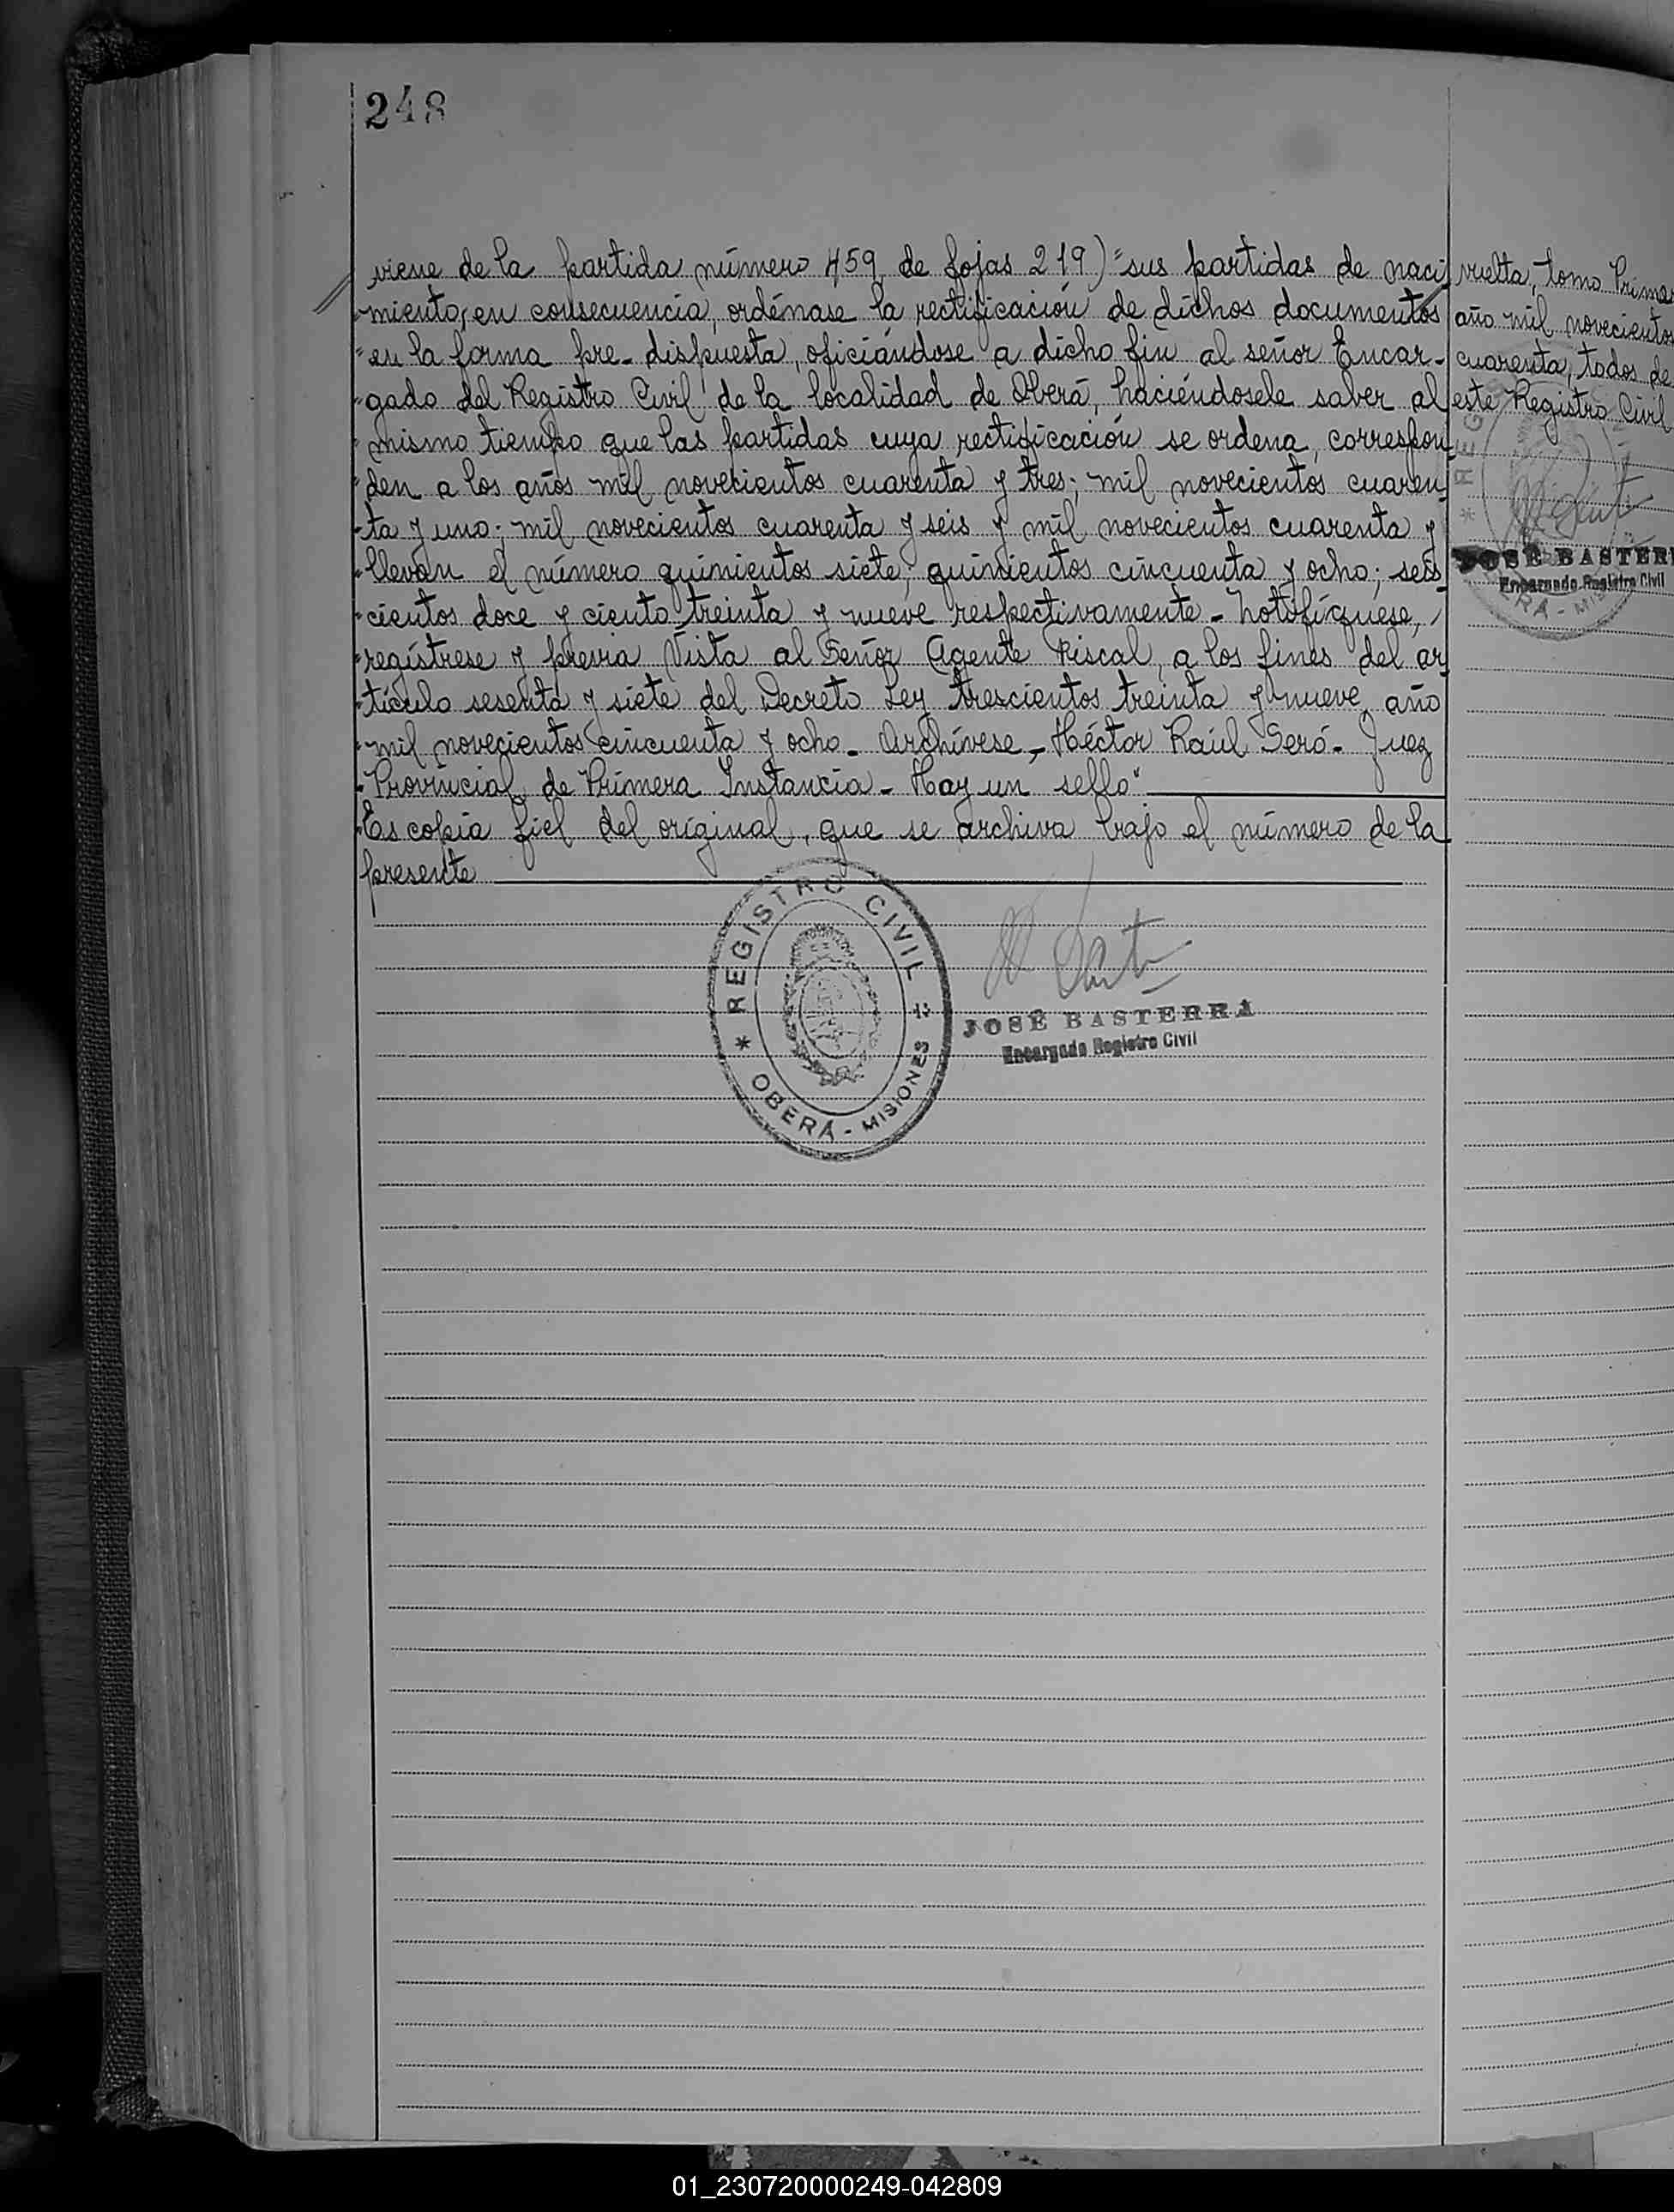 248
viene de la partida número 459 de fojas 219) "sus partidas de naci
"miento, en consecuencia, ordénase la rectificación de dichos documentos
"en la forma pre-dispuesta, oficiándose a dicho fin al señor Encar-
"gado del Registro Civil de la localidad de Oberá, haciéndosele saber al
"mismo tiempo que las partidas cuya rectificación se ordena, correspon
"den a los años mil novecientos cuarenta y tres; mil novecientos cuaren
"ta y uno; mil novecientos cuarenta y seis y mil novecientos cuarenta y
"llevan el número quinientos siete; quinientos cincuenta y ocho; seis
"cientos doce y ciento treinta y nueve respectivamente - Notifíquese,
"regístrese y previa Vista al Señor Agente Fiscal, a los fines del ar
"tículo sesenta y siete del Decreto Ley trescientos treinta y nueve, año
"mil novecientos cincuenta y ocho - Archívese - Héctor Raúl Seró - Juez
"Provincial de Primera Instancia - Hay un sello"
Es copia fiel del original, que se archiva bajo el número de la
presente
REGISTRO CIVIL
* OBERÁ - MISIONES *
JOSÉ BASTERRA
Encargado Registro Civil
vuelta, tomo Prime
año mil novecientos
cuarenta, todos de
este Registro Civil
REG
JOSÉ BASTER
Encargado Registro Civil
RÁ - MIS
01_230720000249-042809